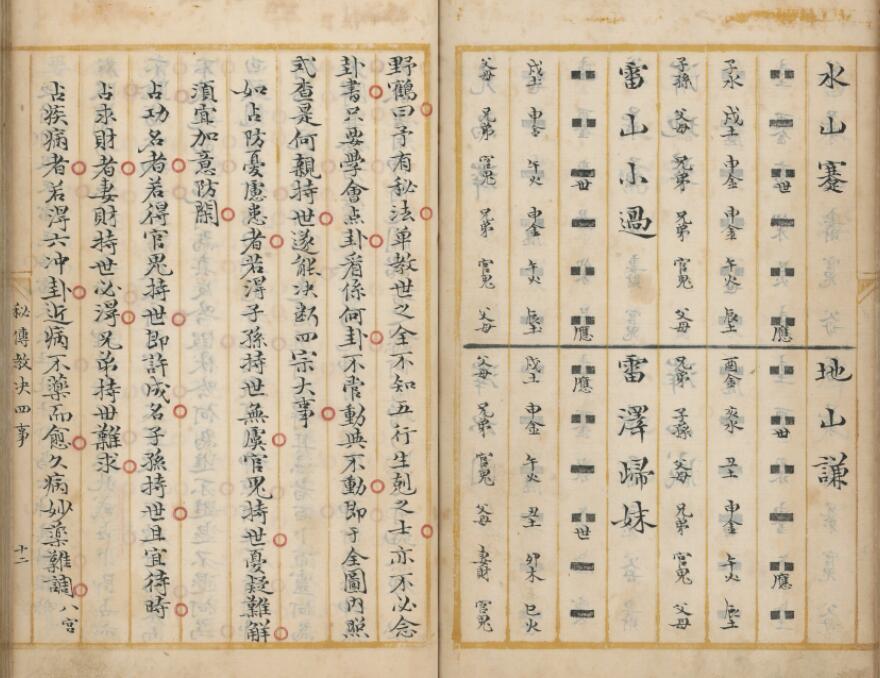 水山蹇
世 應
子水 戌土 申金 申金 午火 辰土
子孫 父母 兄弟 兄弟 官鬼 父母
雷山小過
世 應
戌土 申金 午火 申金 午火 辰土
父母 兄弟 官鬼 兄弟 官鬼 父母
地山謙
世 應
酉金 亥水 丑土 申金 午火 辰土
兄弟 子孫 父母 兄弟 官鬼 父母
雷澤歸妹
應 世
戌土 申金 午火 丑土 卯木 巳火
父母 兄弟 官鬼 父母 妻財 官鬼
野鶴曰予有秘法單教世之全不知五行生剋之士亦不必念
卦書只要學會点卦看係何卦不管動與不動即于全圖內照
式查是何親持世遂能决断四宗大事
如占防憂慮患者若淂子孫持世無虞官鬼持世憂疑難解
須宜加意防閑
占功名者若得官鬼持世即許成名子孫持世且宜待時
占求財者妻財持世必淂兄弟持世難求
占疾病者若淂六冲卦近病不藥而愈久病妙藥難調八宮
秘傳教决四事 十二